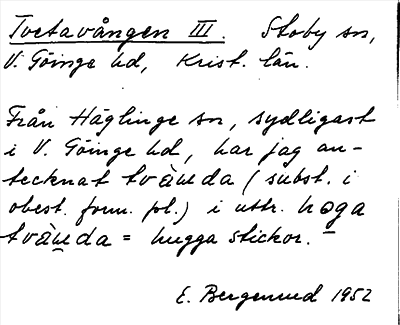 Tvetavången III. Stoby sn,
V. Göinge hd, Krist. län.
Från Häglinge sn, sydligast
i V. Göinge hd, har jag an-
tecknat tvàɯda (subst. i
obest. form. pl.) i uttr. hoga
tvàɯda = hugga stickor. –
E. Bergenrud 1952